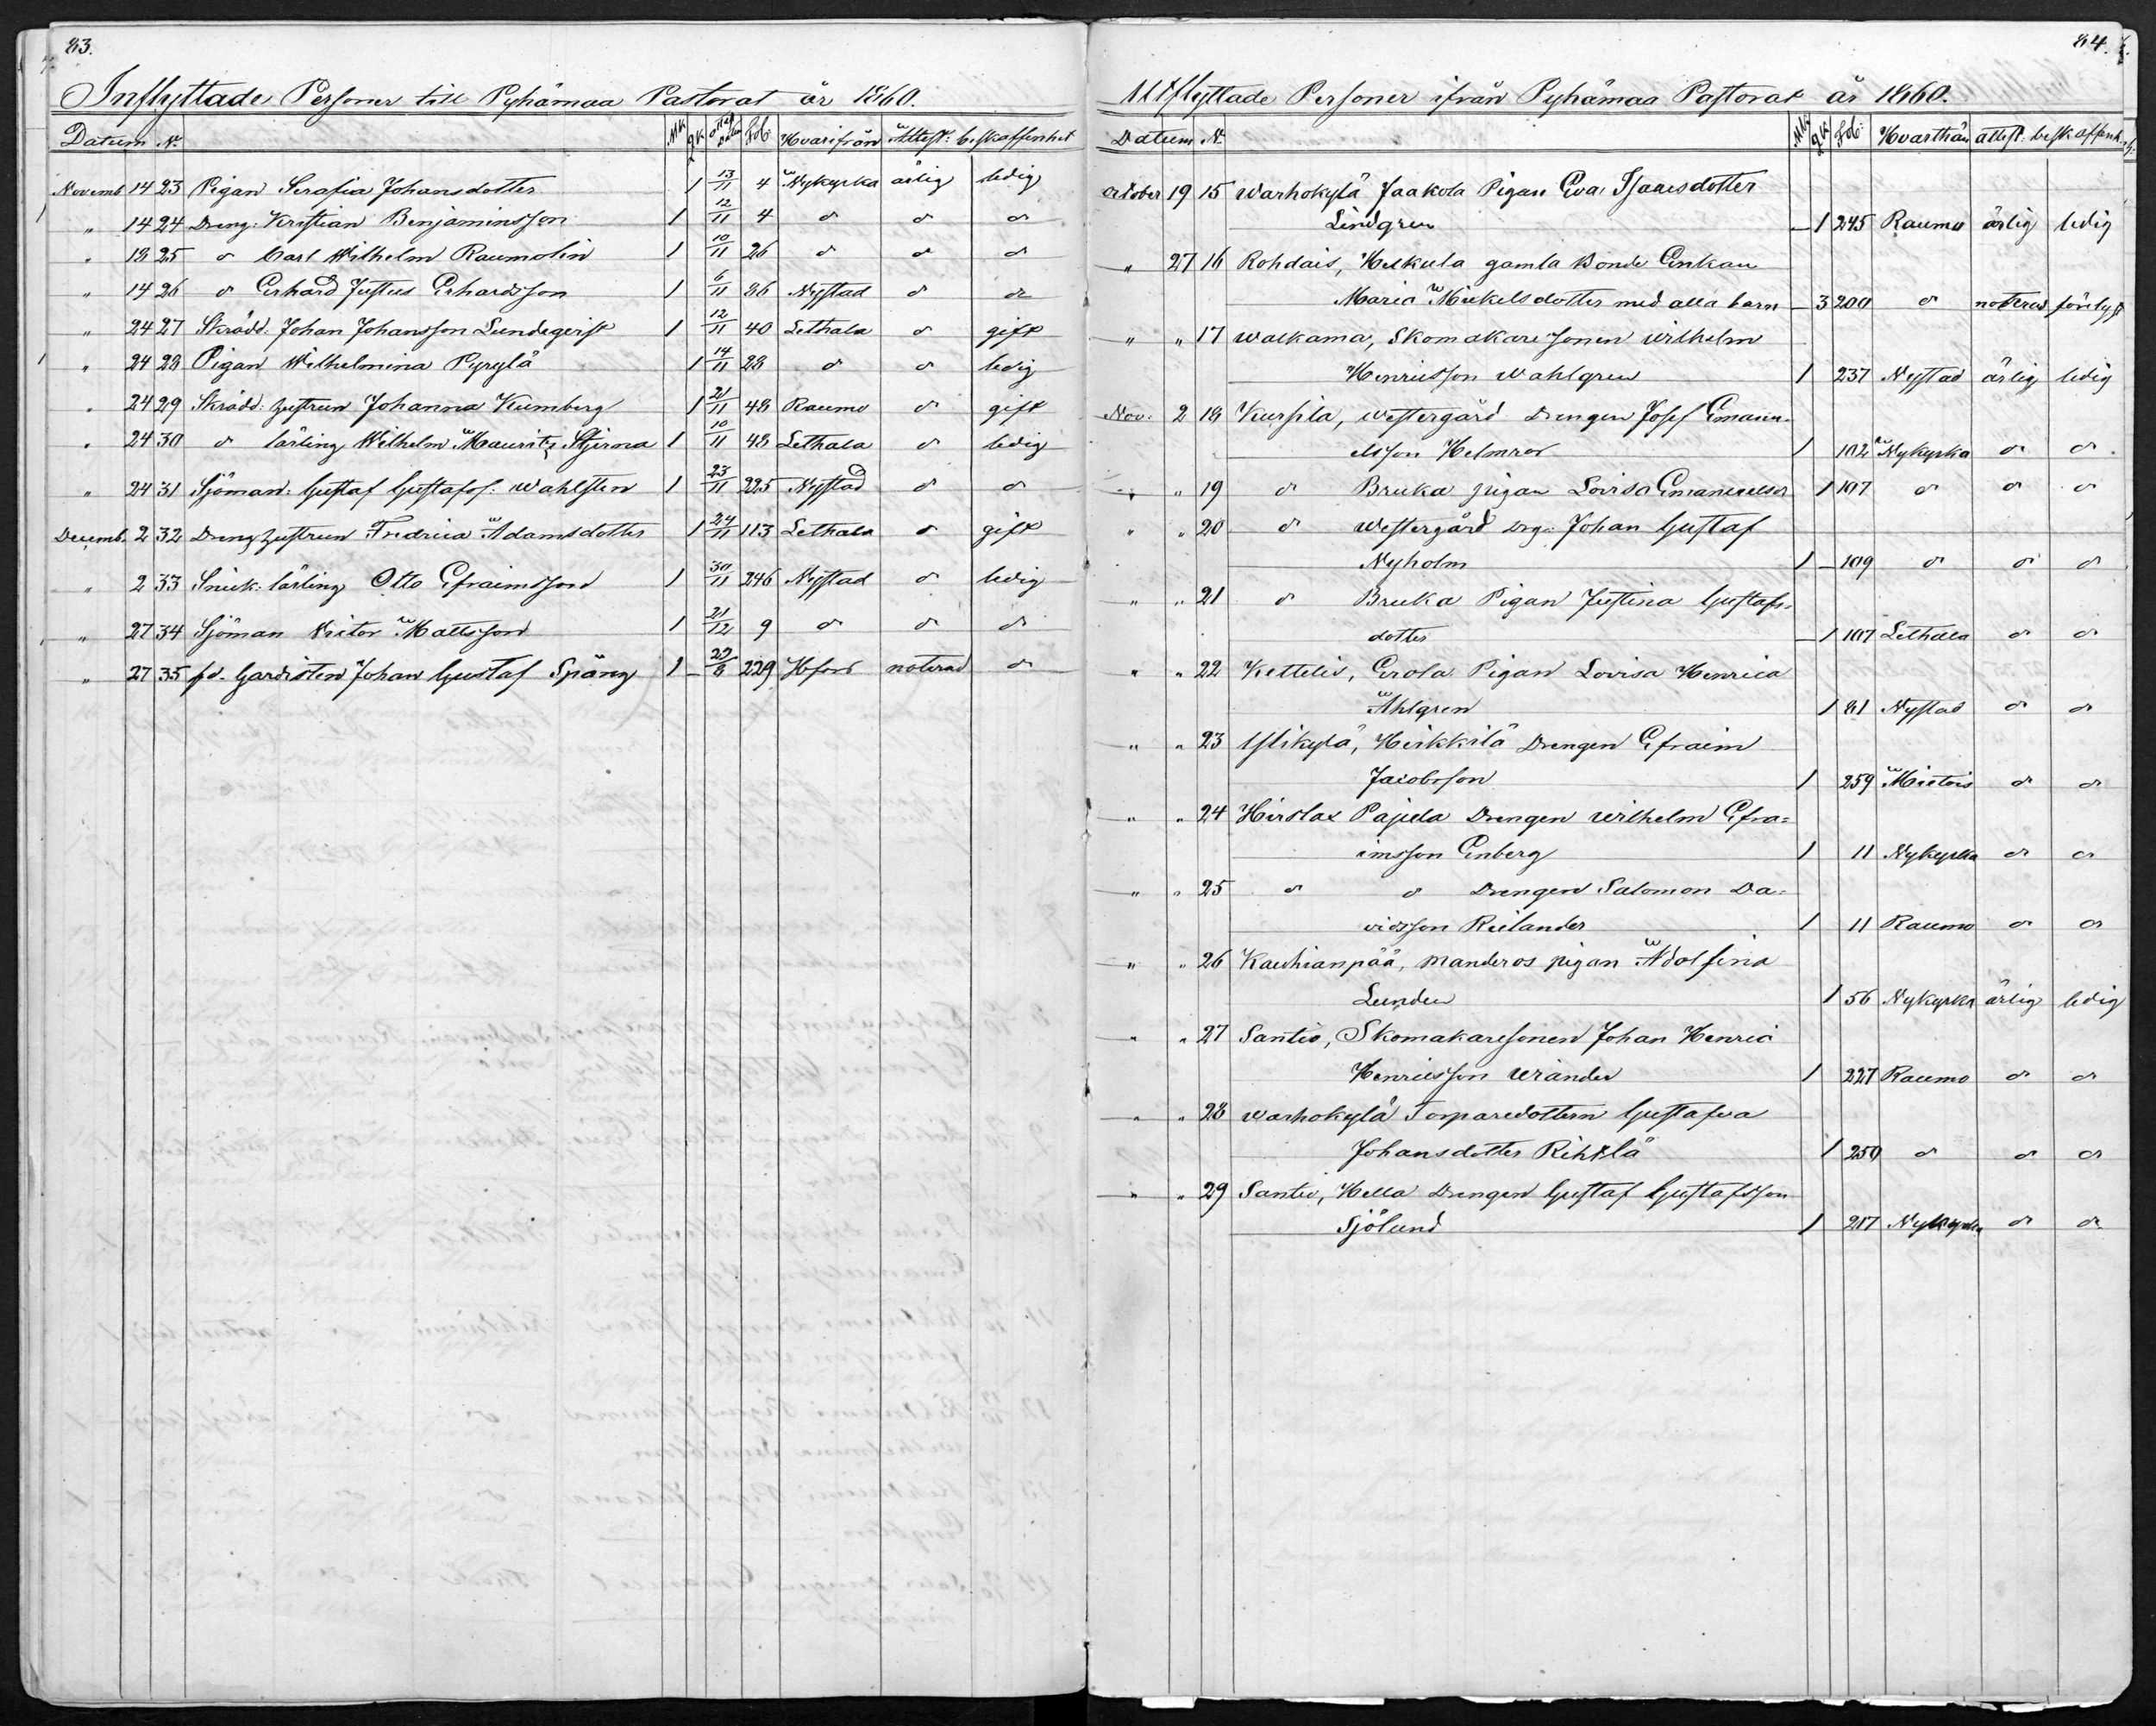 83.
Inflyttade Personer till Pyhämaa Pastorat år 1860.
Datum No. MK QK attest datum Fol: Hvarifrån Attest: beskaffenhet
Novemb. 14 23 Pigan Serafia Johansdotter 1 13/11 4 Nykyrka ärlig ledig
" 14 24 Dreng: Kristian Benjaminsson 1 12/11 4 d:o d:o d:o
" 18 25 d:o Carl Wilhelm Raumolin 1 10/11 26 d:o d:o d:o
" 14 26 d:o Erhard Justus Erhardsson 1 6/11 86 Nystad d:o d:o
" 24 27 Skrädd: Johan Johansson Lundeqvist 1 12/11 40 Lethala d:o gift
" 24 28 Pigan Wilhelmina Pyrylä 1 14/11 28 d:o d:o ledig
" 24 29 Skrädd: hustrun Johanna Kumberg 1 21/11 48 Raumo d:o gift
" 24 30 d:o lärling Wilhelm Mauritz Stjerna 1 10/11 48 Lethala d:o ledig
" 24 31 Sjöman: Gustaf Gustafss: Wahlsten 1 23/11 225 Nystad d:o d:o
Decemb. 2 32 Dreng hustrun Fredrica Adamsdotter 1 24/11 113 Lethala d:o gift
" 2 33 Snick: lärling Otto Efraimsson 1 30/11 246 Nystad d:o ledig
" 27 34 Sjöman Victor Mattsson 1 21/12 9 d:o d:o d:o
" 27 35 fd. Gardisten Johan Gustaf Späng 1 – 22/8 229 Hfors noterad d:o
84.
Utflyttade Personer ifrån Pyhämaa Pastorat år 1860.
Datum No. MK QK Fol: Hvarthän attest. beskaffenh.
October 19 15 Warhokylä Jaakola Pigan Eva Isaacsdotter
Lindgren – 1 245 Raumo ärlig ledig
" 27 16 Rohdais, Heikula gamla Bonde Enkan
Maria Mickelsdotter med alla barn – 3 200 d:o noterad förelyst
" " 17 Walkama, Skomakare sonen Wilhelm
Henricsson Wahlgren 1 237 Nystad ärlig ledig
Nov. 2 18 Kursila, Westergård Drengen Josef Emanu-
elsson Helmros 1 102 Nykyrka d:o d:o
" " 19 d:o Bruka pigan Lovisa Emanuelsd:r 1 107 d:o d:o d:o
" " 20 d:o Westergård Drg: Johan Gustaf
Nyholm 1 – 109 d:o d:o d:o
" " 21 d:o Bruka Pigan Justina Gustafs-
dotter – 1 107 Lethala d:o d:o
" " 22 Kettelis, Erola Pigan Lovisa Henrica
Ahlgren 1 81 Nystad d:o d:o
" " 23 Ylikylä, Heikkilä Drengen Efraim
Jacobsson 1 259 Mietois d:o d:o
" " 24 Hirslax Pajula Drengen Wilhelm Efra-
imsson Enberg 1 11 Nykyrka d:o d:o
" " 25 d:o d:o Drengen Salomon Da-
vidsson Rielander 1 11 Raumo d:o d:o
" " 26 Kauhianpää, Manderos pigan Adolfina
Lunden 1 56 Nykyrka ärlig ledig
" " 27 Santio, Skomakaresonen Johan Henric
Henricsson Wrander 1 227 Raumo d:o d:o
" " 28 Warhokylä Torparedottern Gustafva
Johansdotter Rihtlä 1 250 d:o d:o d:o
" " 29 Santio, Hella Drengen Gustaf Gustafsson
Sjölund 1 217 Nykyrka d:o d:o